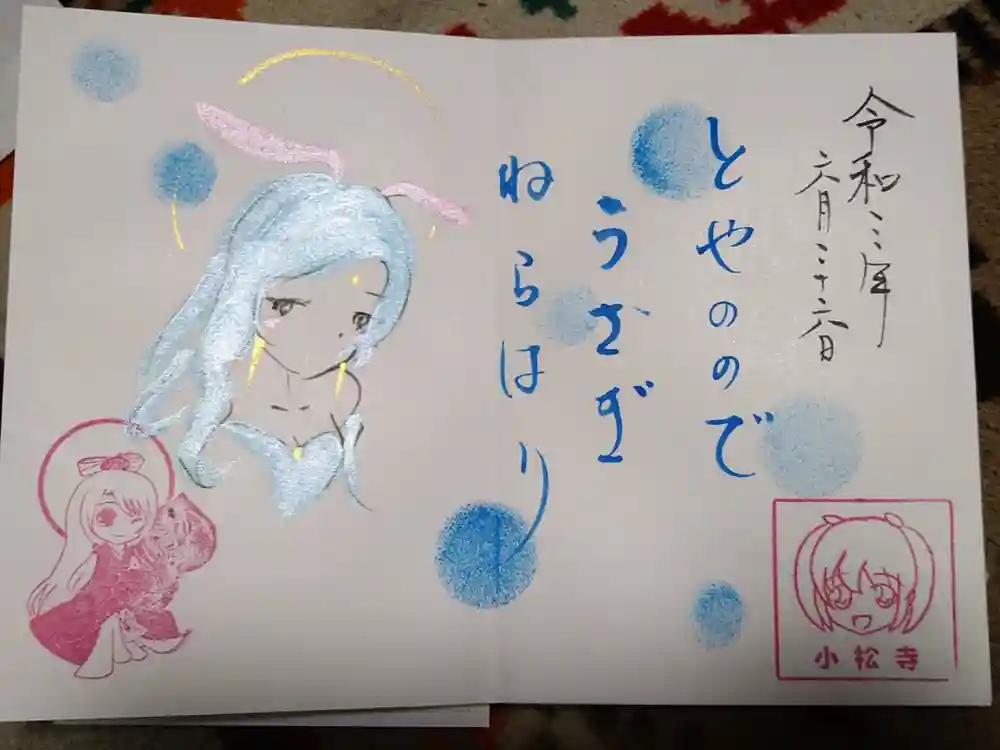 令和二年
六月二十六日
とやのので
うさぎ
ねらはり
小松寺